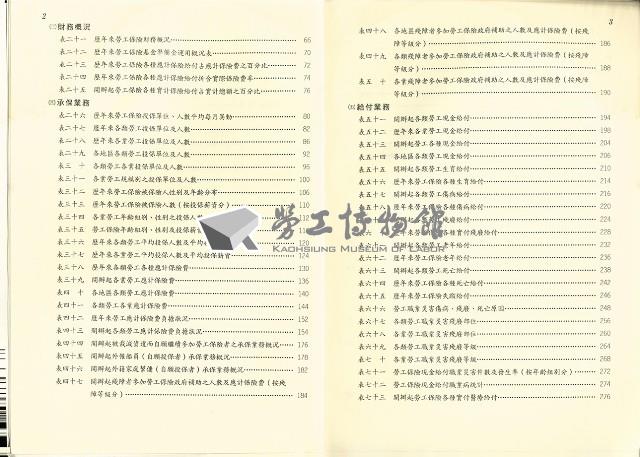 2
㈢財務概況
表二十一 歷年來勞工保險財務概況 66
表二十二 歷年來勞工保險基金準備金運用概況表 70
表二十三 歷年來勞工保險各種應計保險給付占應計保險費之百分比 72
表二十四 歷年來勞工保險各種應計保險給付折合實際保險費率 74
表二十五 開辦起勞工保險各種實計保險給付占實計總額之百分比 76
㈣承保業務
表二十六 歷年來勞工保險投保單位、人數平均每月異動 80
表二十七 歷年來各類勞工投保單位及人數 82
表二十八 歷年來各業勞工投保單位及人數 86
表二十九 各地區各類勞工投保單位及人數 92
表三十 各類勞工各業投保單位及人數 95
表三十一 各業勞工規模別之投保單位及人數 100
表三十二 歷年來勞工保險被保險人性別及年齡分布 106
表三十三 歷年來勞工保險被保險人數（按投保薪資分） 110
表三十四 各業勞工年齡組別、性別之投保人數 112
表三十五 勞工保險年齡組別、性別及投保薪
表三十六 歷年來各類勞工平均投保人數及平均投保 120
表三十七 歷年來各業勞工平均投保人數及平均投保薪資 124
表三十八 歷年來各類勞工各種應計保險費 130
表三十九 開辦起各業勞工應計保險費 136
表四十 各地區各類勞工應計保險費 140
表四十一 各類勞工各業應計保險費 144
表四十二 歷年來勞工應計保險費負擔狀況 152
表四十三 開辦起各類勞工應計保險費負擔狀況 154
表四十四 開辦起被裁減資遣而自願繼續參加勞工保險者之承保業務概況 176
表四十五 開辦起外僱船員（自願投保者）承保業務概況 178
表四十六 開辦起外籍家庭幫傭（自願投保者）承保業務概況 182
表四十七 開辦起殘障者參加勞工保險政府補助之人數及應計保險費（按殘
障等級分） 184
3
表四十八 各地區殘障者參加勞工保險政府補助之人數及應計保險費（按殘
障等級分） 186
表四十九 各類殘障者參加勞工保險政府補助之人數及應計保險費（按殘障
等級分） 188
表五十 各業殘障者參加勞工保險政府補助之人數及應計保險費（按殘障
等級分） 190
㈤給付業務
表五十一 開辦起各類勞工現金給付 194
表五十二 歷年來各業勞工現金給付 198
表五十三 開辦起勞工各種現金給付 204
表五十四 各地區各類勞工現金給付 206
表五十五 開辦起各類勞工生育給付 210
表五十六 歷年來勞工保險各種生育給付 214
表五十七 開辦起各類勞工傷病給付 216
表五十八 歷年來勞工保險各種傷病給付 220
表五十九 各類勞工殘廢給付 224
表六十 各種實付殘廢給付 228
各類勞工老年給付 232
勞工保險老年給付 236
表六十三 開辦起各類勞工死亡給付 238
表六十四 歷年來勞工保險各種死亡給付 242
表六十五 歷年來勞工保險失蹤給付 246
表六十六 勞工職業災害傷病、殘廢、死亡原因 248
表六十七 各類勞工職業災害殘廢部位 256
表六十八 各業勞工職業災害殘廢部位 260
表六十九 各類勞工職業災害殘廢等級 264
表七十 各業勞工職業災害殘廢等級 268
表七十一 勞工保險現金給付職業災害件數及發生率（按年齡組別分） 272
表七十二 勞工保險現金給付職業病統計 274
表七十三 開辦起勞工保險各種實付醫療給付 276
勞工博物館
KAOHSIUNG MUSEUM OF LABOR